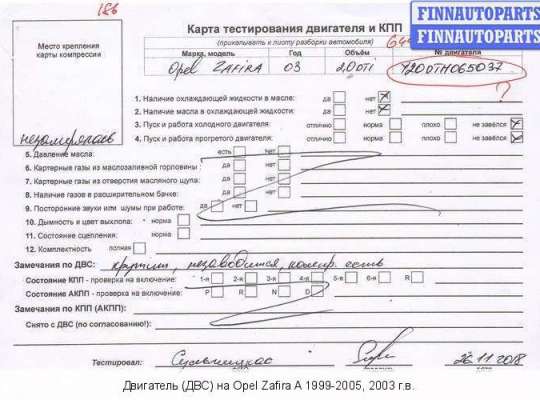 186
Карта тестирования двигателя и КПП
FINNAUTOPARTS
FINNAUTOPARTS
(прикалывать к листу разборки автомобиля)
Место крепления карты компрессии
Марка, модель Год Объём № двигателя
Opel ZAFIRA 03 2.0DTi Y20DTH065037
?
1. Наличие охлаждающей жидкости в масле: да нет
2. Наличие масла в охлаждающей жидкости: да нет
3. Пуск и работа холодного двигателя: отлично норма плохо не завёлся
4. Пуск и работа прогретого двигателя: отлично норма плохо не завёлся
5. Давление масла: есть нет
6. Картерные газы из маслозаливной горловины: да нет
7. Картерные газы из отверстия масляного щупа: да нет
8. Наличие газов в расширительном бачке: да нет
9. Посторонние звуки или шумы при работе: да нет
10. Дымность и цвет выхлопа: норма
11. Состояние сцепления: норма
12. Комплектность полная
Замечания по ДВС: крутили, не заводится, компр. есть
Состояние КПП - проверка на включение: 1-я 2-я 3-я 4-я 5-я 6-я R
Состояние АКПП - проверка на включение: P R N D
Замечания по КПП (АКПП):
Снято с ДВС (по согласованию!):
Тестировал: 26.11.2018
Двигатель (ДВС) на Opel Zafira A 1999-2005, 2003 г.в.